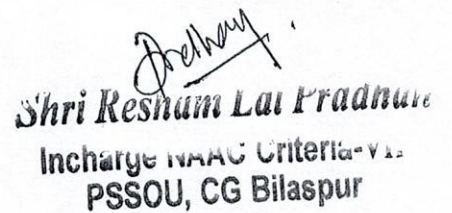 Shri Resham Lal Pradhan
Incharge NAAC Criteria-VII
PSSOU, CG Bilaspur